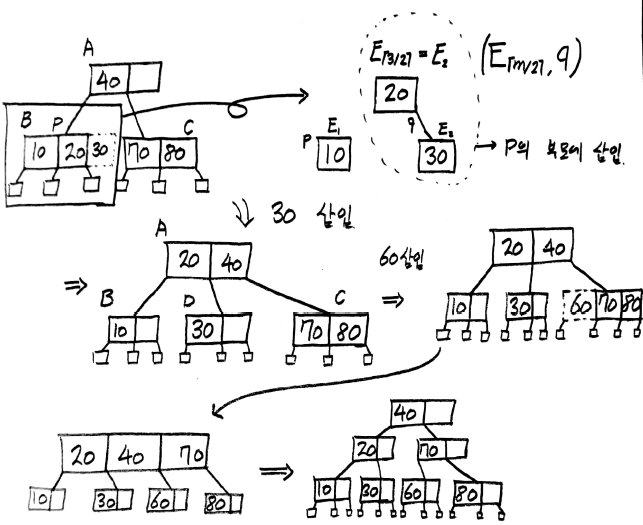 A
40
B P C
10 20 30 70 80
E⌈3/2⌉ = E₂ (E⌈m/2⌉, q)
20
q
P E₁ E₃
10 30 → P의 부모에 삽입
⇓ 30 삽입
A
⇒ 20 40
B D C
10 30 70 80
60삽입
⇒
20 40
10 30 60 70 80
20 40 70
10 30 60 80
⇒
40
20 70
10 30 60 80